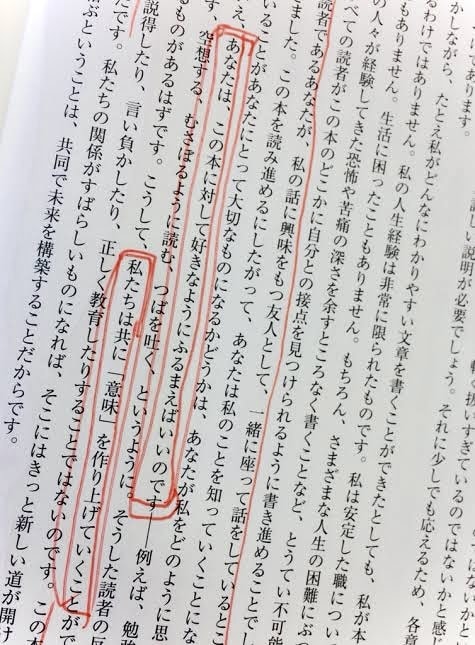 てあります。
しい説明が必要でしょう。それに少しでも応えるため、各章
かしながら、たとえ私がどんなにわかりやすい文章を書くことができたとしても、私が本
るわけではありません。私の人生経験は非常に限られたものです。私は安定した職につい
もありません。生活に困ったこともありません。もちろん、さまざまな人生の困難にぶつ
の人々が経験してきた恐怖や苦痛の深さを余すところなく書くことなど、とうてい不可能
べての読者がこの本のどこかに自分との接点を見つけられるように書き進めることでし
読者であるあなたが、私の話に興味をもつ友人として、一緒に座って話をしているとこ
ました。この本を読み進めるにしたがって、あなたは私のことを知っていくことにな
いることがあなたにとって大切なものになるかどうかは、あなたが私をどのように思
え、あなたは、この本に対して好きなようにふるまえばいいのです——例えば、勉強
空想する、むさぼるように読む、つばを吐く、というように。そうした読者の反
るものがあるはずです。こうして、私たちは共に「意味」を作り上げていくことがで
説得したり、言い負かしたり、正しく教育したりすることではないのです。この本
たです。私たちの関係がすばらしいものになれば、そこにはきっと新しい道が開け
ぶということは、共同で未来を構築することだからです。